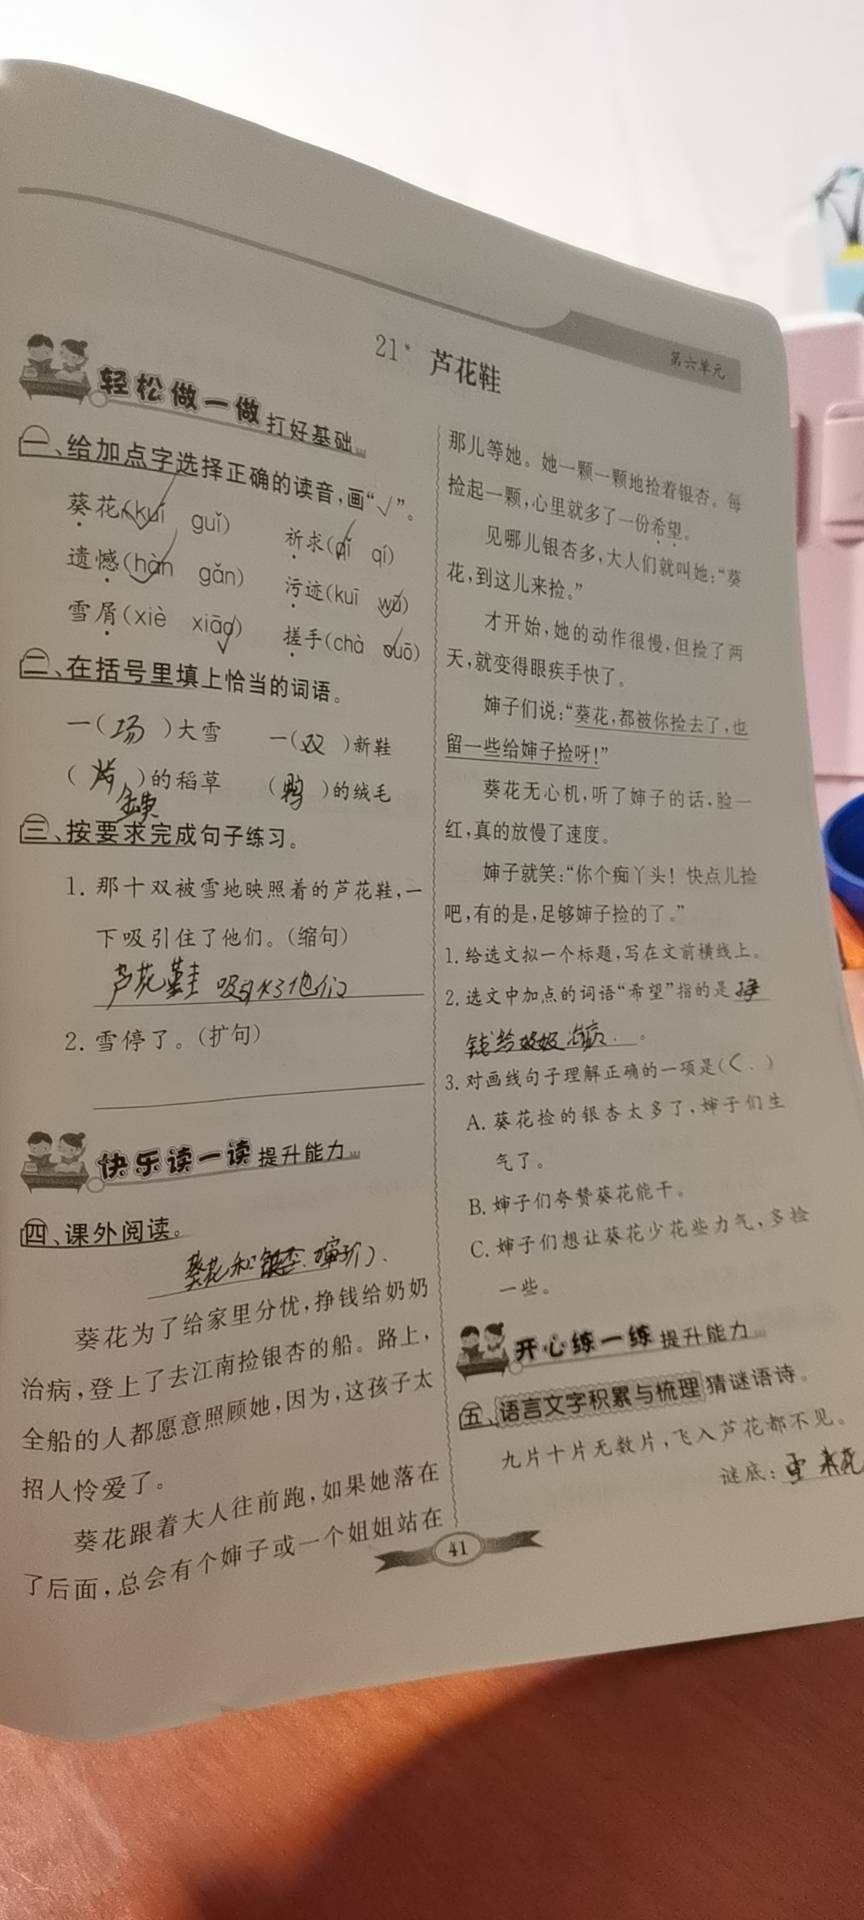 第六单元
21* 芦花鞋
轻松做一做 打好基础
一、给加点字选择正确的读音,画“√”。
葵花(kuí guǐ) 祈求(qǐ qí)
遗憾(hàn gǎn) 污迹(kuī wū)
雪屑(xiè xiāo) 搓手(chà cuō)
二、在括号里填上恰当的词语。
一(场)大雪 一(双)新鞋
( )的稻草 (鸭)的绒毛
金黄
三、按要求完成句子练习。
1. 那十双被雪地映照着的芦花鞋,一
下吸引住了他们。(缩句)
芦花鞋吸引住了他们
2. 雪停了。(扩句)
快乐读一读 提升能力
四、课外阅读。
葵花和银杏
葵花为了给家里分忧,挣钱给奶奶
治病,登上了去江南捡银杏的船。路上,
全船的人都愿意照顾她,因为,这孩子太
招人怜爱了。
葵花跟着大人往前跑,如果她落在
了后面,总会有个婶子或一个姐姐站在
那儿等她。她一颗一颗地捡着银杏。每
捡起一颗,心里就多了一份希望。
见哪儿银杏多,大人们就叫她:“葵
花,到这儿来捡。”
才开始,她的动作很慢,但捡了两
天,就变得眼疾手快了。
婶子们说:“葵花,都被你捡去了,也
留一些给婶子捡呀!”
葵花无心机,听了婶子的话,脸一
红,真的放慢了速度。
婶子就笑:“你个痴丫头! 快点儿捡
吧,有的是,足够婶子捡的了。”
1. 给选文拟一个标题,写在文前横线上。
2. 选文中加点的词语“希望”指的是挣
钱给奶奶治病。
3. 对画线句子理解正确的一项是(C)
A. 葵花捡的银杏太多了,婶子们生
气了。
B. 婶子们夸赞葵花能干。
C. 婶子们想让葵花少花些力气,多捡
一些。
开心练一练 提升能力
五、语言文字积累与梳理 猜谜语诗。
九片十片无数片,飞入芦花都不见。
谜底:雪花
41